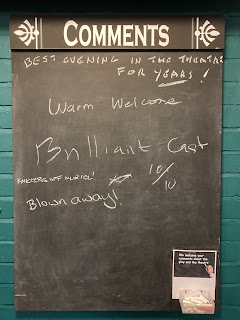 COMMENTS
BEST EVENING IN THE THEATRE
FOR YEARS!
Warm Welcome
Brilliant Cast
KNICKERS OFF MURIEL!
10/10
Blown away!
We welcome your
comments about the
play and the theatre